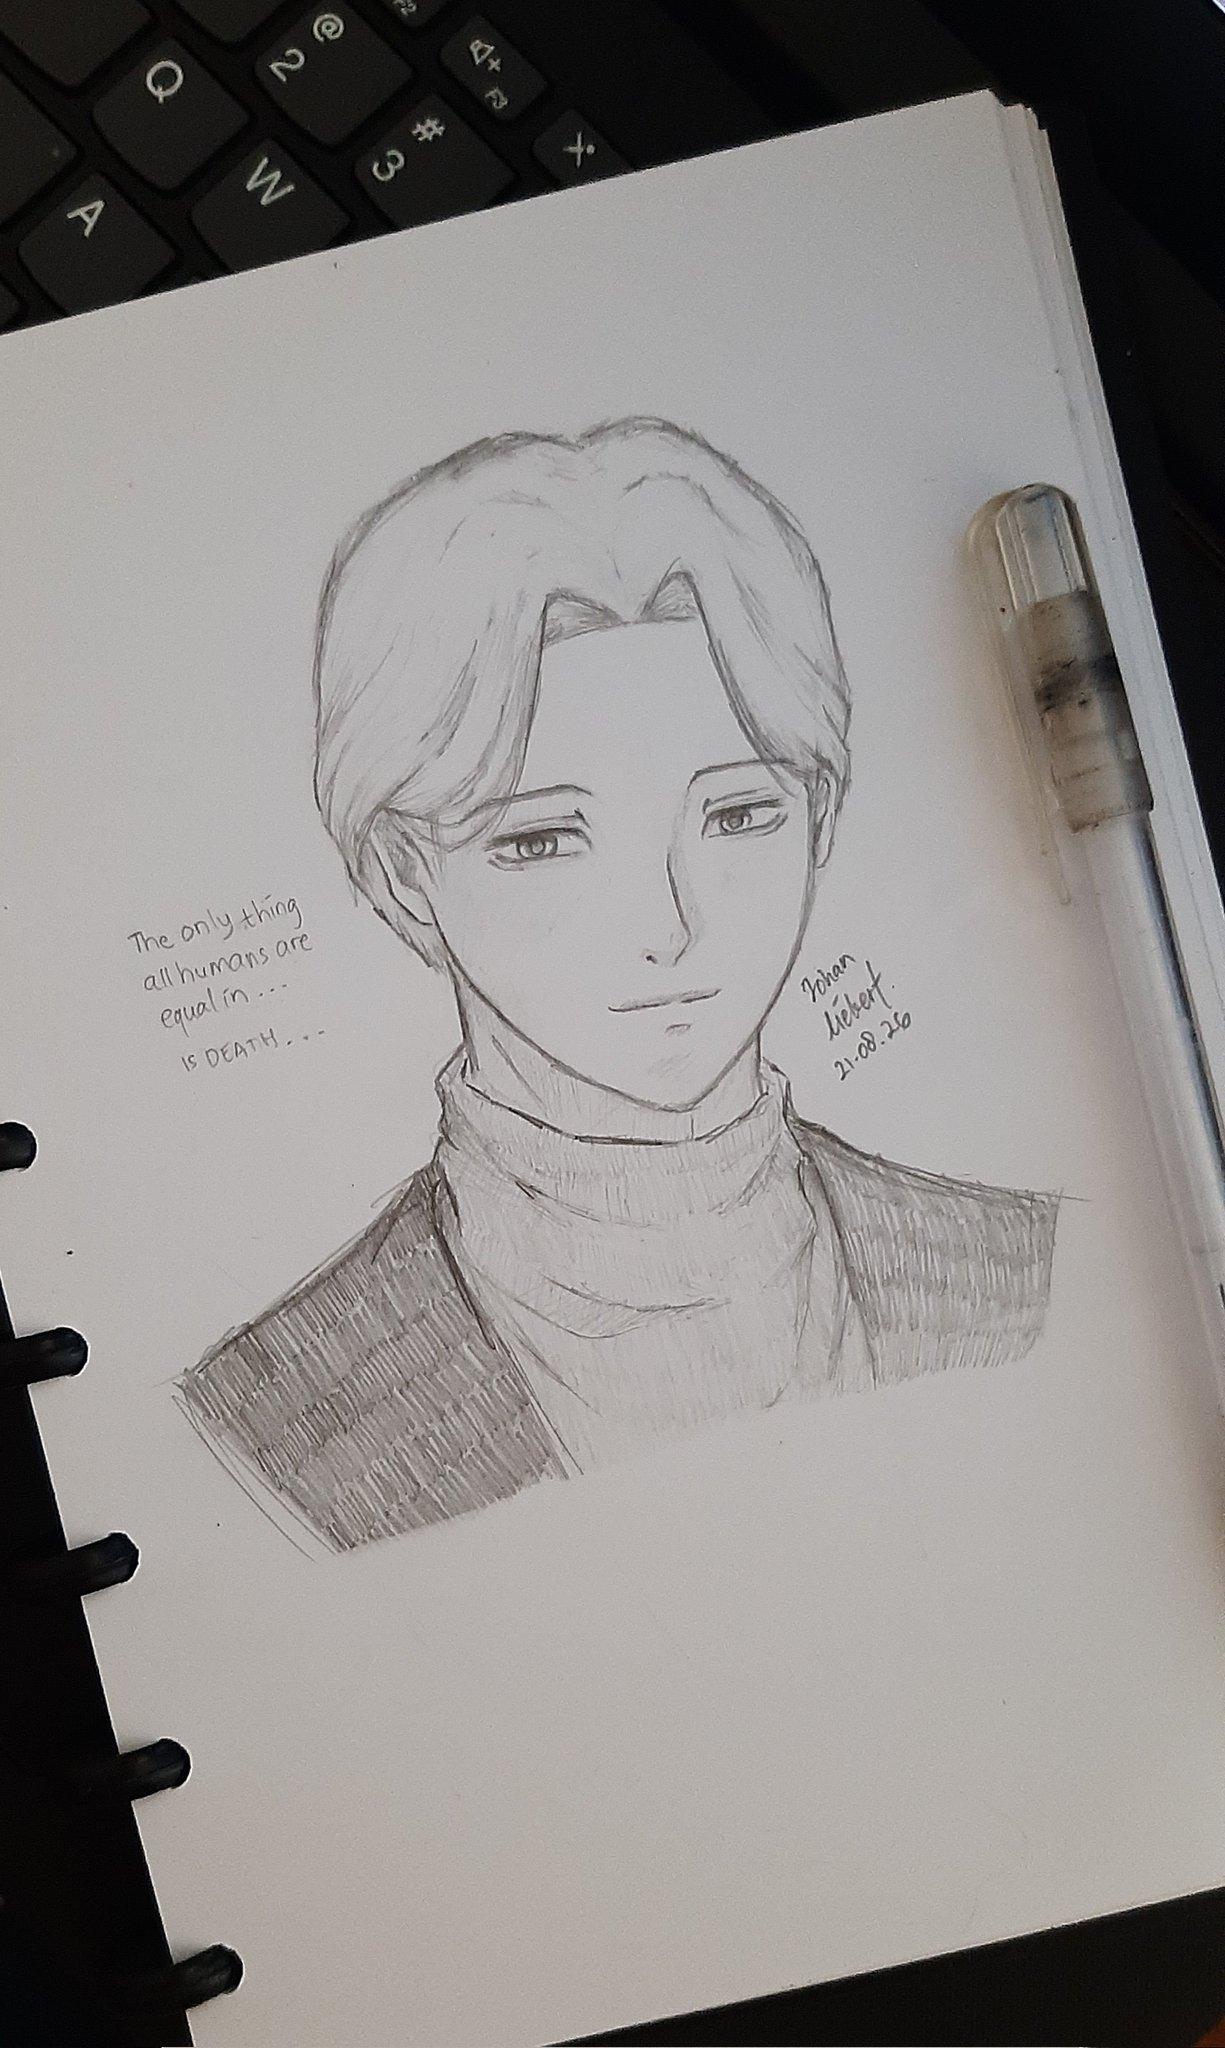 @
2
Q
F2
F3
#
3
W
A
The only thing
all humans are
equal in ...
IS DEATH...
Johan
Liebert.
21.08.26